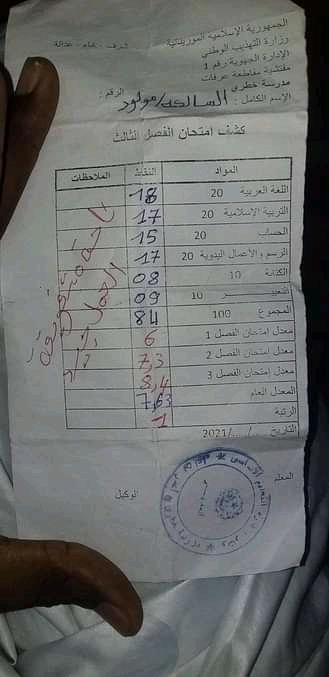 الجمهورية الإسلامية الموريتانية
وزارة التهذيب الوطني شرف - إخاء - عدالة
الإدارة الجهوية رقم 1
مفتشية مقاطعة عرفات
مدرسة خطري
الإسم الكامل : السالكه/مولود الرقم :
كشف امتحان الفصل الثالث
المواد النقاط الملاحظات
اللغة العربية 20 18
التربية الإسلامية 20 17
الحساب 20 15
الرسم و الأعمال اليدوية 20 17
الكتابة 10 08
التعبير 10 09
المجموع 100 84
معدل إمتحان الفصل 1 6
معدل امتحان الفصل 2 7,3
معدل امتحان الفصل 3 8,4
المعدل العام 7,63
الرتبة 1
التاريخ .../.../2021
المعلم
الوكيل